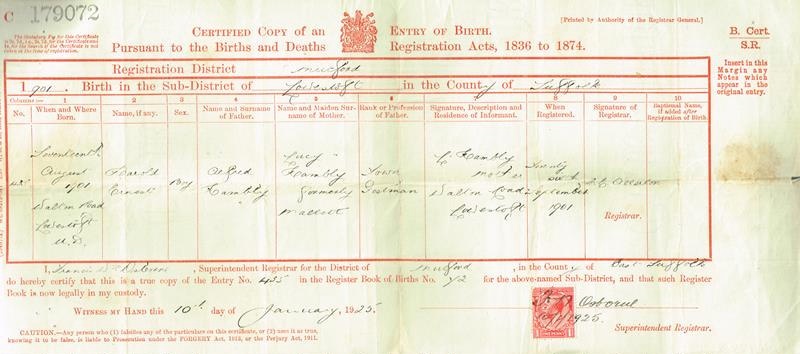 C 179072
CERTIFIED COPY OF AN ENTRY OF BIRTH.
[Printed by Authority of the Registrar General.]
B. Cert.
S.R.
Pursuant to the Births and Deaths Registration Acts, 1836 to 1874.
Insert in this
Margin any
Notes which
appear in the
original entry.
Registration District Mutford
1901. Birth in the Sub-District of Lowestoft in the County of Suffolk
Columns:— 1 2 3 4 5 6 7 8 9 10
No. When and Where Born. Name, if any. Sex. Name and Surname of Father. Name and Maiden Surname of Mother. Rank or Profession of Father. Signature, Description and Residence of Informant. When Registered. Signature of Registrar. Baptismal Name, if added after Registration of Birth.
Seventeenth
August
1901
Walton Road
Lowestoft
U.D.
Harold
Ernest
Boy
Alfred
Hambly
Lucy
Hambly
formerly
Mallett
Town
Postman
L. Hambly
Mother
Walton Road
Lowestoft
Twenty
September
1901
Registrar.
I, Francis Osborne, Superintendent Registrar for the District of Mutford, in the County of East Suffolk
do hereby certify that this is a true copy of the Entry No. 435 in the Register Book of Births No. 42 for the above-named Sub-District, and that such Register
Book is now legally in my custody.
WITNESS MY HAND this 10th day of January, 1925.
Osborne
1925.
Superintendent Registrar.
CAUTION.—Any person who (1) falsifies any of the particulars on this certificate, or (2) uses it as true,
knowing it to be false, is liable to Prosecution under the FORGERY Act, 1913, or the Perjury Act, 1911.